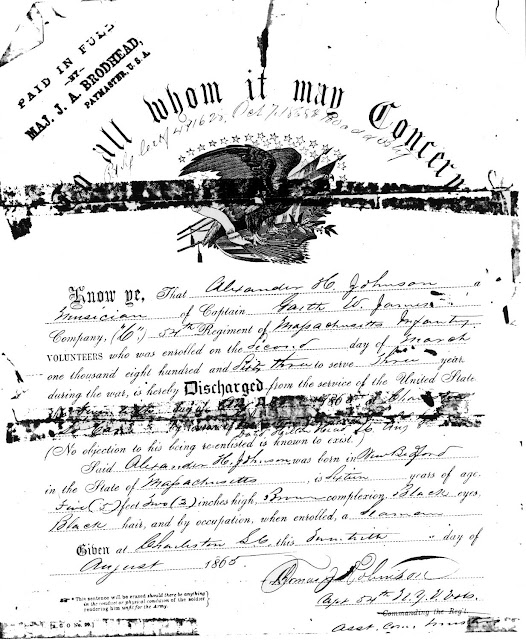 PAID IN FULL
—BY—
MAJ. J. A. BRODHEAD,
PAYMASTER, U.S.A.
To all whom it may Concern
Oct 7. 1888
Know ye, That Alexander H. Johnson a
Musician of Captain Garth W. James'
Company, ("C") 54th Regiment of Massachusetts Infantry
VOLUNTEERS who was enrolled on the Second day of March
one thousand eight hundred and Sixty three to serve Three years
during the war, is hereby Discharged from the service of the United State
(No objection to his being re-enlisted is known to exist.)
Said Alexander H. Johnson was born in New Bedford
in the State of Massachusetts, is Sixteen years of age,
Five (5) feet Two (2) inches high, Brown complexion, Black eyes,
Black hair, and by occupation, when enrolled, a Seaman
Given at Charleston S.C. this Twentieth day of
August 1865.
Capt 54th N.Y. Vols.
Commanding the Reg't.
Asst. Com. Musters
This sentence will be erased should there be anything
in the conduct or physical condition of the soldier
rendering him unfit for the Army.